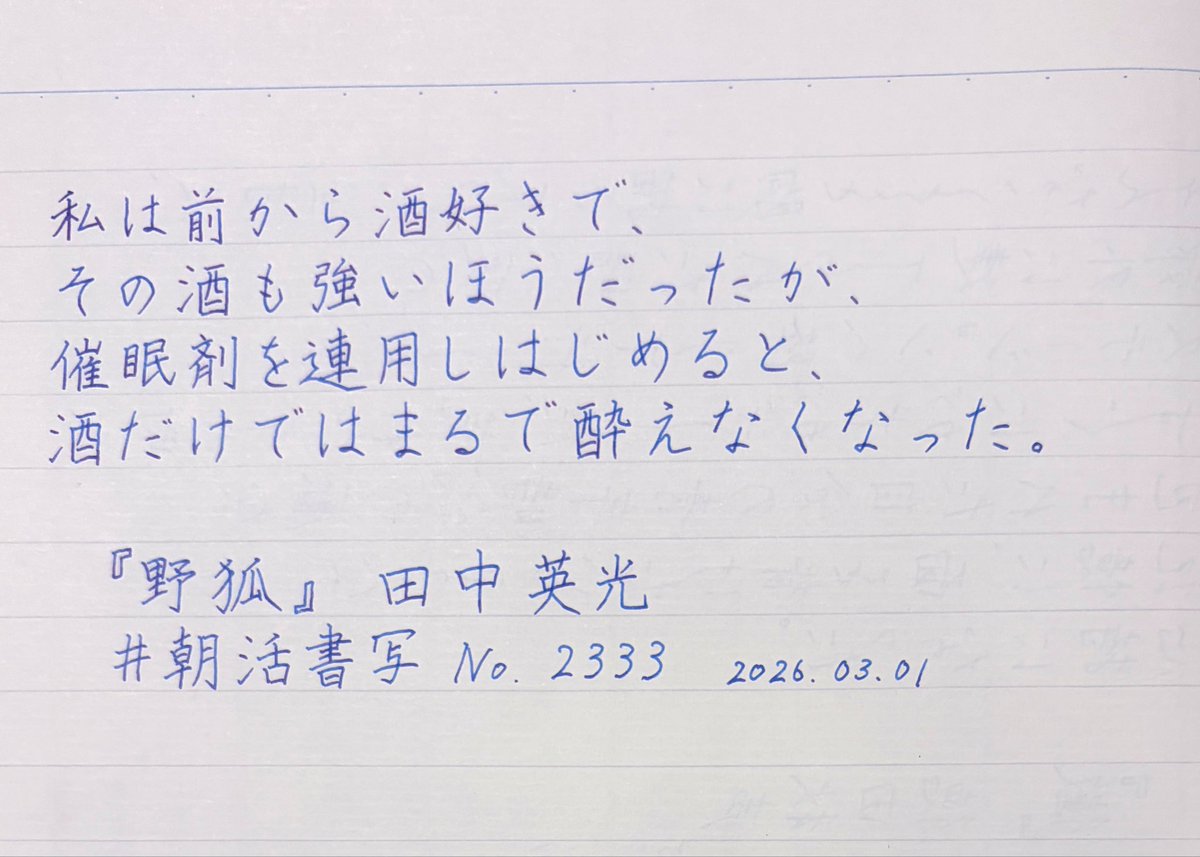 私は前から酒好きで、
その酒も強いほうだったが、
催眠剤を連用しはじめると、
酒だけではまるで酔えなくなった。
『野狐』 田中英光
#朝活書写 No. 2333 2026.03.01